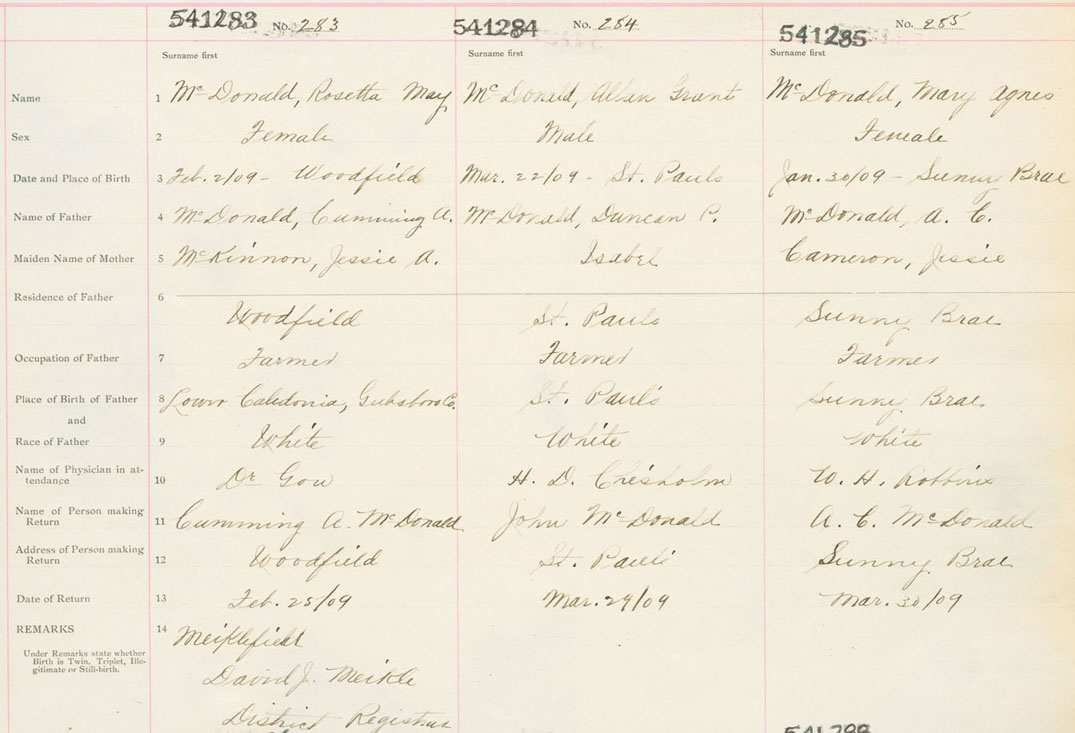 541283 No. 283 541284 No. 284 541285 No. 285
Surname first Surname first Surname first
Name 1 McDonald, Rosetta May McDonald, Allan Grant McDonald, Mary Agnes
Sex 2 Female Male Female
Date and Place of Birth 3 Feb. 2/09 - Woodfield Mar. 22/09 - St. Pauls Jan. 30/09 - Sunny Brae
Name of Father 4 McDonald, Cumming A. McDonald, Duncan P. McDonald, A. C.
Maiden Name of Mother 5 McKinnon, Jessie A. Isabel Cameron, Jessie
Residence of Father 6
Woodfield St. Pauls Sunny Brae
Occupation of Father 7 Farmer Farmer Farmer
Place of Birth of Father 8 Lower Caledonia, Co. St. Paul's Sunny Brae
and
Race of Father 9 White White White
Name of Physician in at-
tendance 10 Dr Gow H. D. Chisholm W. H. Robbins
Name of Person making
Return 11 Cumming A. McDonald John McDonald A. C. McDonald
Address of Person making
Return 12 Woodfield St. Pauls Sunny Brae
Date of Return 13 Feb. 25/09 Mar. 29/09 Mar. 30/09
REMARKS 14 Meiklefield
Under Remarks state whether
Birth is Twin, Triplet, Ille-
gitimate or Still-birth.
David J. Meikle
District Registrar